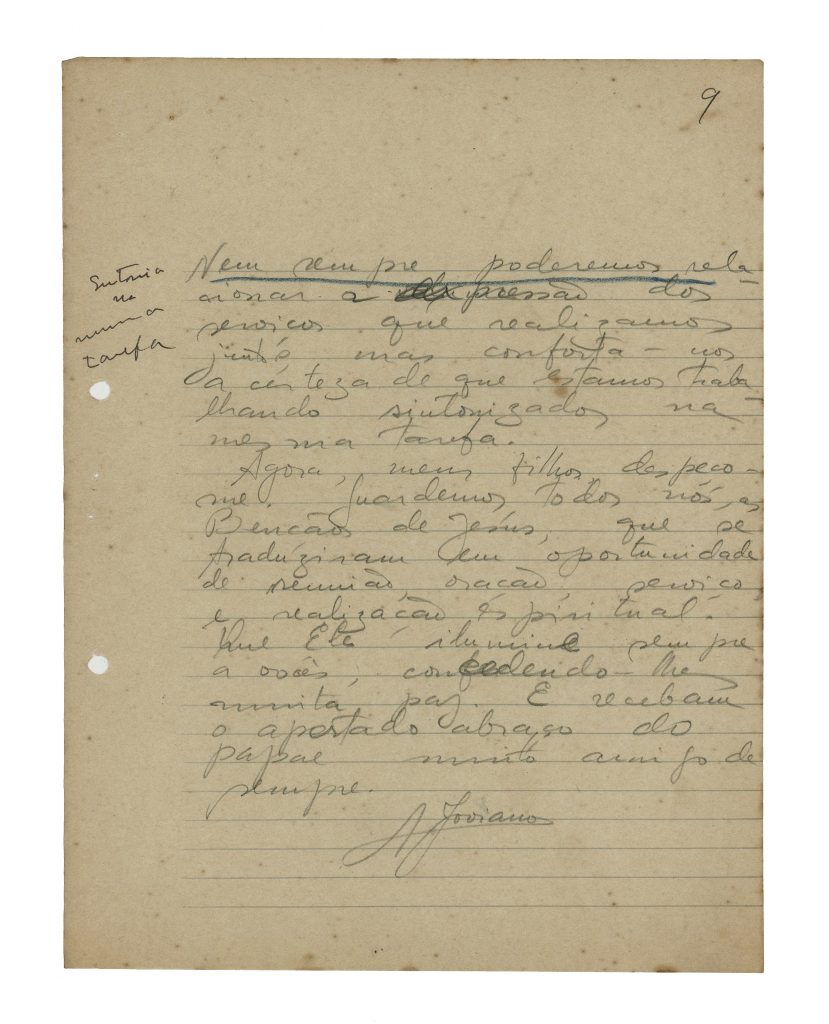 9
Sintonia
na
mesma
tarefa
Nem sempre poderemos rela-
cionar a expressão dos
serviços que realizamos
juntos, mas conforta-nos
a certeza de que estamos traba
lhando sintonizados na
mesma tarefa.
Agora, meus filhos, despeço-
me. Guardemos todos nós, as
Bençãos de Jesús, que se
traduziram em oportunidade
de reunião, oração, serviço,
e realização espiritual.
Que Ele ilumine sempre
a vocês, concedendo-lhes
muita paz. E recebam
o apertado abraço do
papae muito amigo de
sempre.
A Joviano